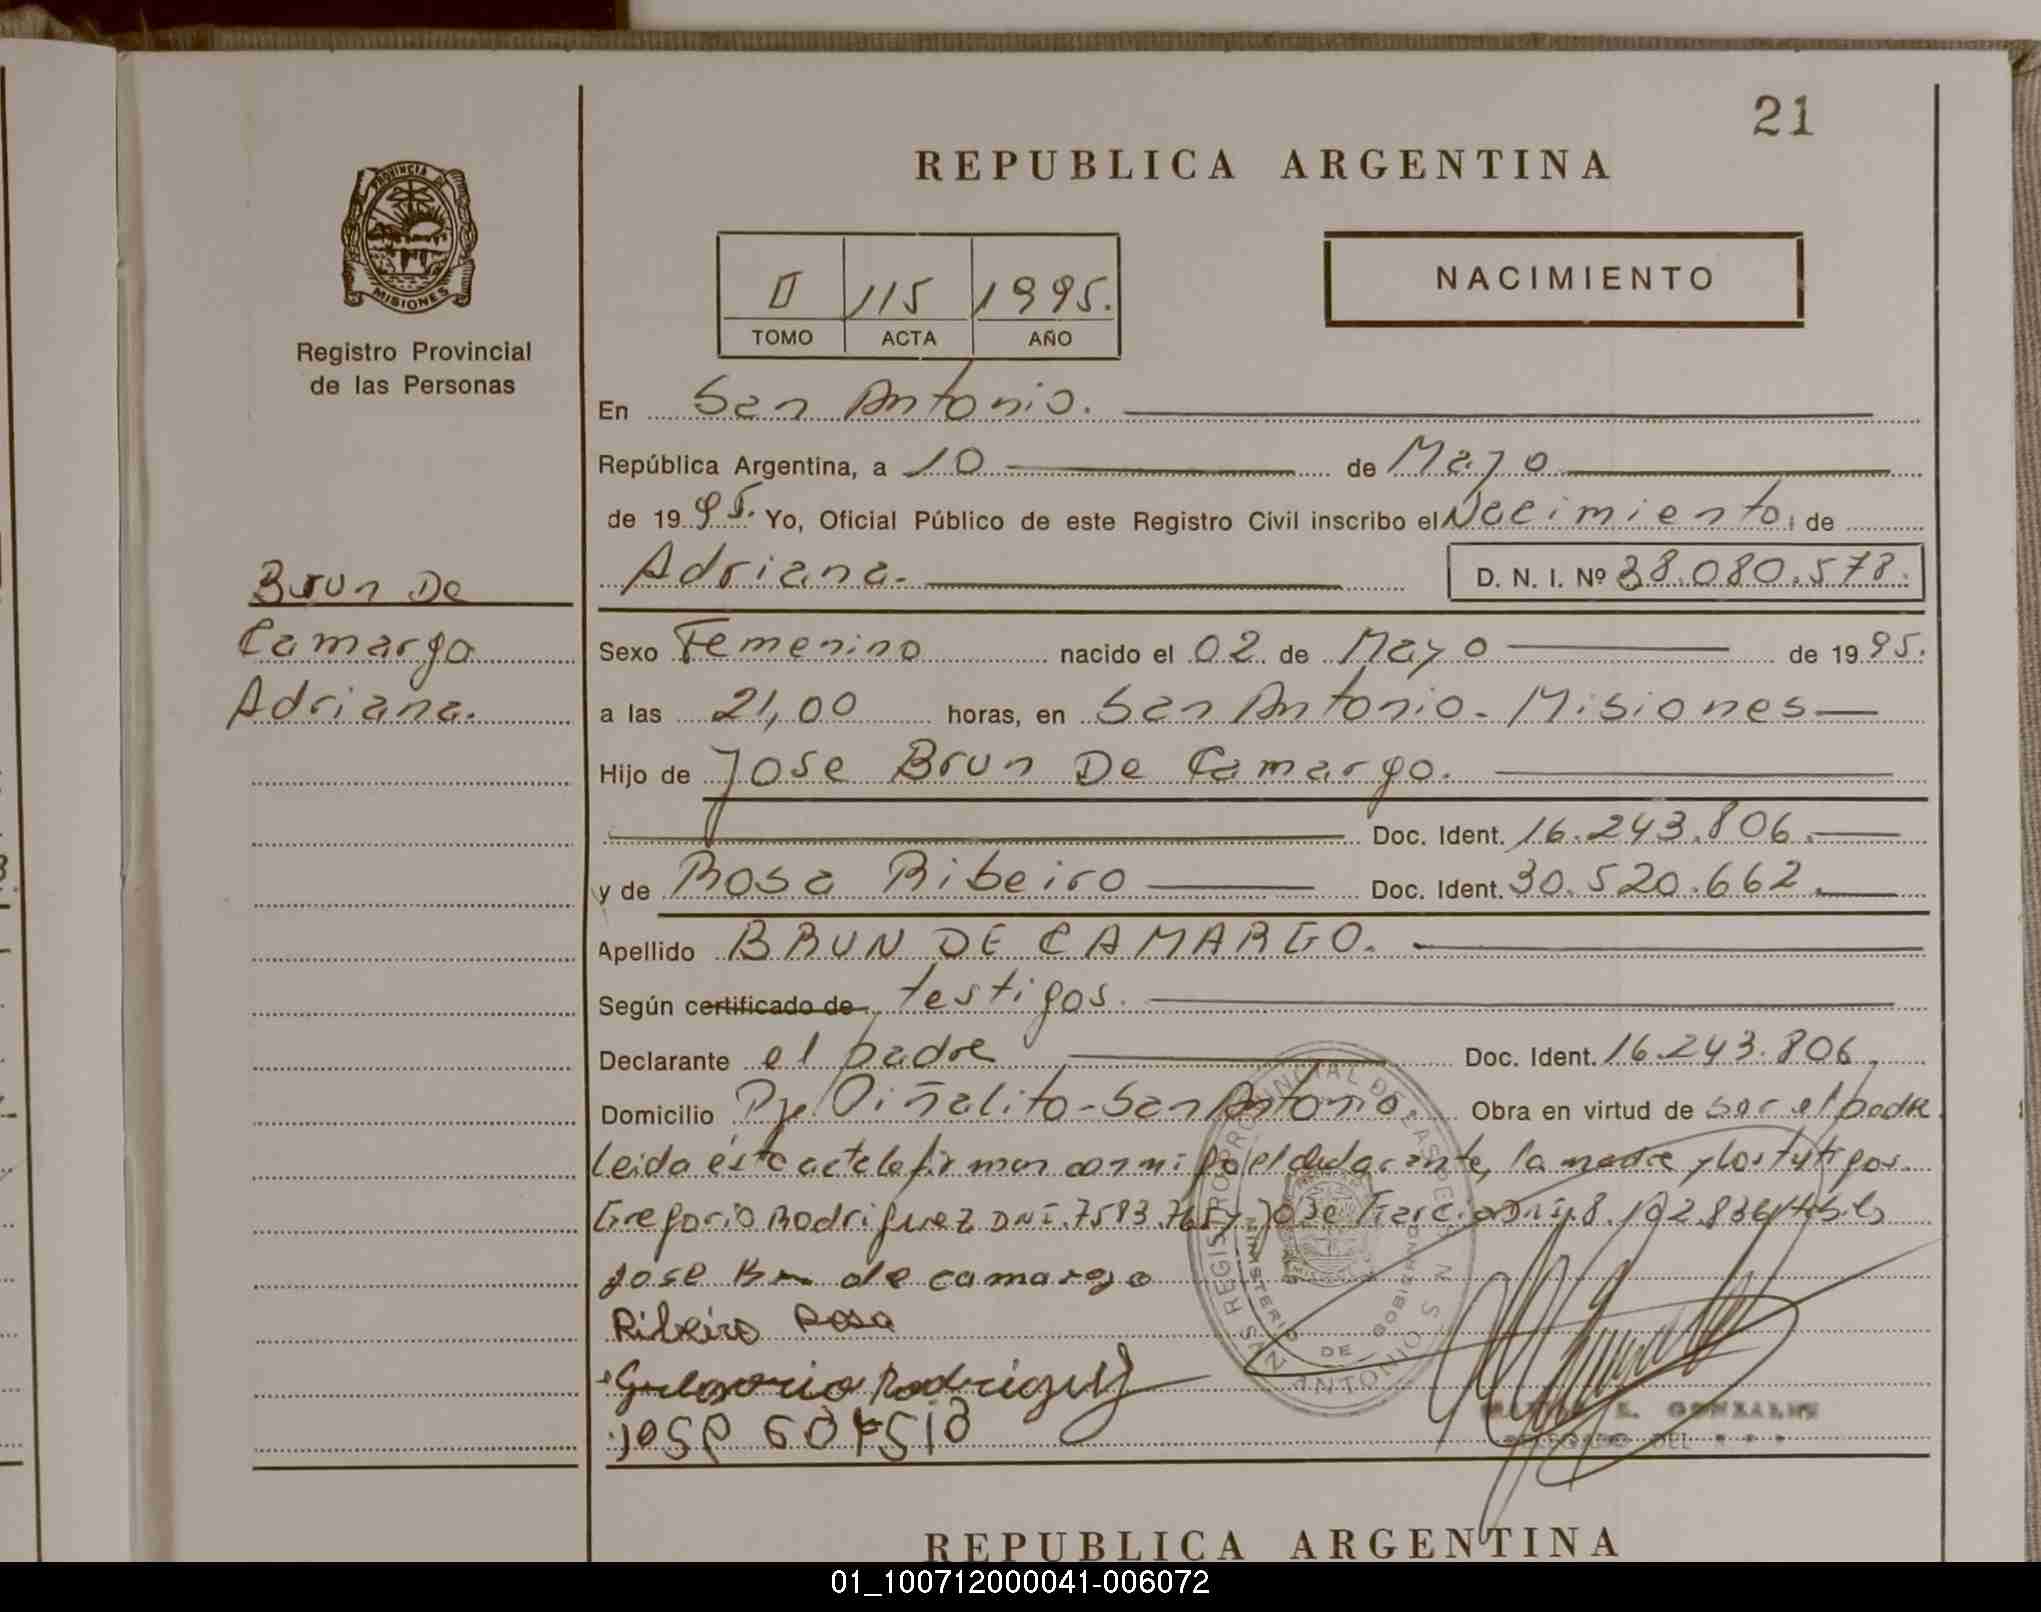 21
REPUBLICA ARGENTINA
PROVINCIA DE
MISIONES
Registro Provincial
de las Personas
II 115 1995.
TOMO ACTA AÑO
NACIMIENTO
En San Antonio.
República Argentina, a 10 de Mayo
de 1995. Yo, Oficial Público de este Registro Civil inscribo el Nacimiento, de
Adriana. D. N. I. Nº 38.080.578.
Brun De
Camargo
Adriana.
Sexo Femenino nacido el 02 de Mayo de 1995.
a las 21,00 horas, en San Antonio - Misiones
Hijo de Jose Brun De Camargo.
Doc. Ident. 16.243.806.
y de Rosa Ribeiro Doc. Ident. 30.520.662.
Apellido BRUN DE CAMARGO.
Según certificado de testigos.
Declarante el padre Doc. Ident. 16.243.806,
Domicilio Pje. Piñalito - San Antonio. Obra en virtud de ser el padre
Leida ésta acta la firman conmigo el declarante, la madre y los testigos.
Gregorio Rodriguez DNI. 7583.765 y Jose Garcia DNI. 8.102.836
Jose Brun de camargo
Ribeiro Rosa
Gregorio Rodriguez
REGISTRO PROVINCIAL DE LAS PERSONAS
MINISTERIO DE GOBIERNO
SAN ANTONIO
GONZALEZ
DELEGADO DEL
REPUBLICA ARGENTINA
01_100712000041-006072